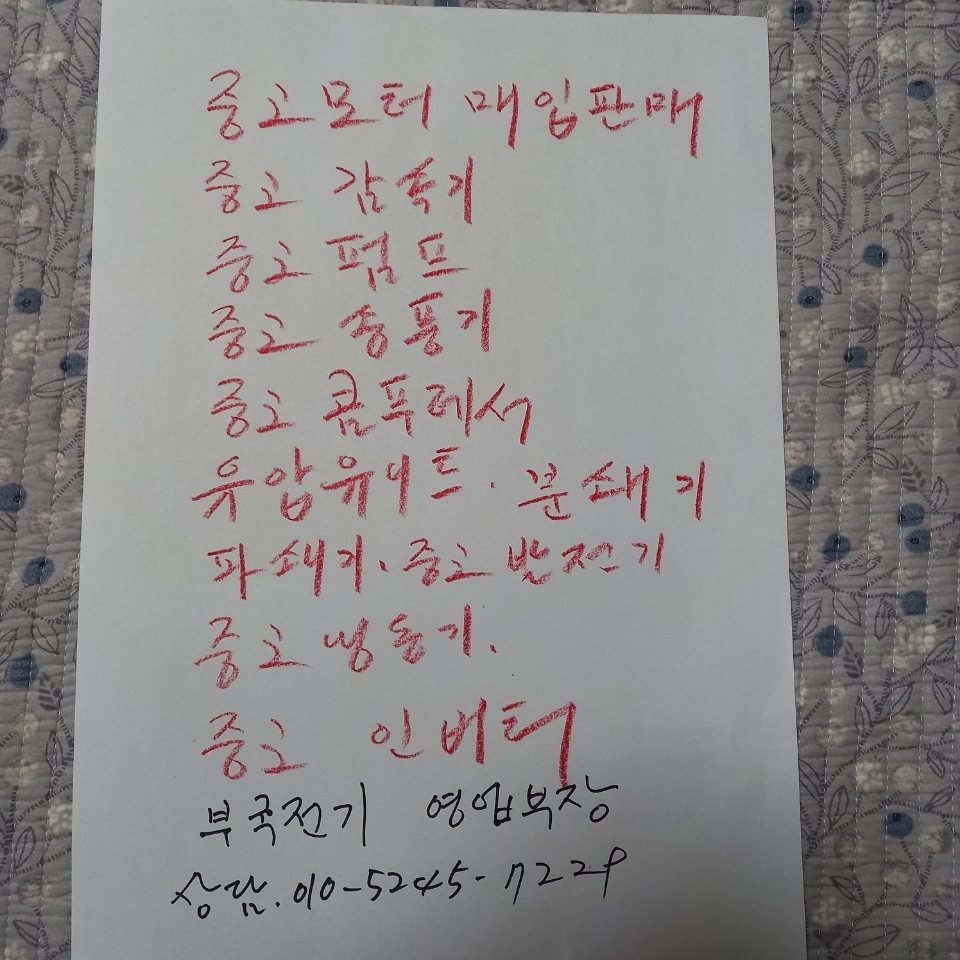 중고모터 매입판매
중고 감속기
중고 펌프
중고 송풍기
중고 콤푸레셔
유압유니트. 분쇄기
파쇄기. 중고 발전기
중고 냉동기.
중고 인버터
부국전기 영업부장
상담. 010-5245-7229